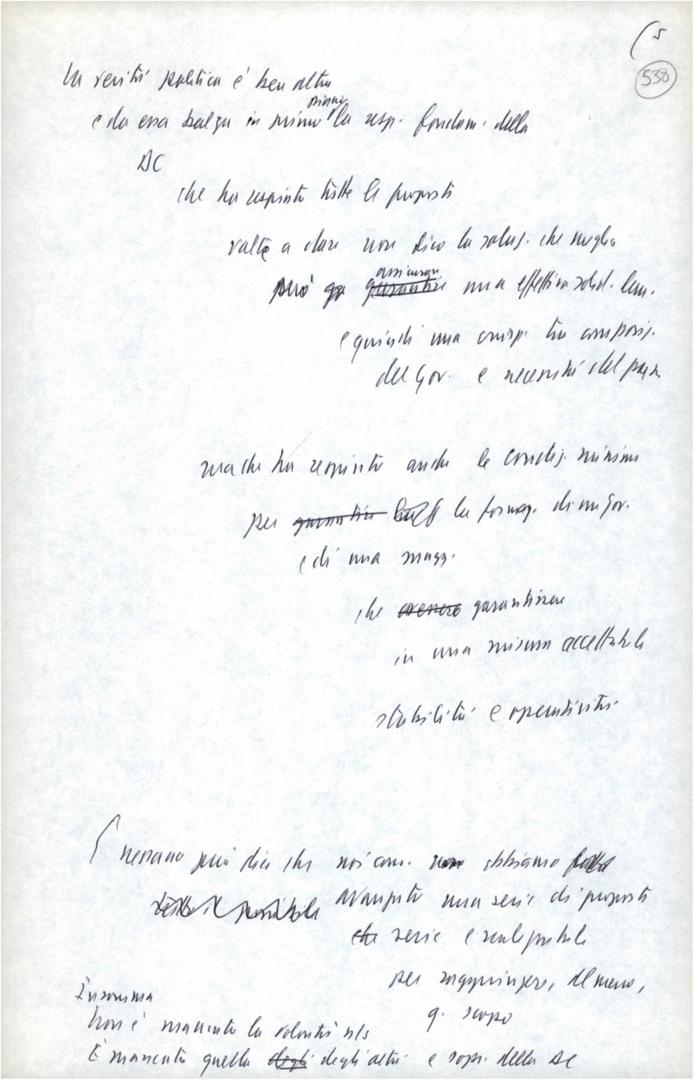 5
538
La verità politica è ben altra
e da essa balza in primo piano la resp. fondam. della
DC
che ha respinto tutte le proposte
volte a dare non dico la soluz. che meglio
può garantire assicurare una effettiva solid. 
e quindi una corrisp. tra composiz.
del Gov. e necessità del paese
ma che ha respinto anche le condiz. minime
per garantire la formaz. di un Gov.
e di una magg.
che avesse garantissero
in una misura accettabile
stabilità e operatività
E nessuno può dire che noi com. non abbiamo fatto
tutto il possibile avanzato una serie di proposte
che serie e realizzabili
per raggiungere, almeno,
q. scopo
Insomma
Non è mancata la volontà ns
È mancata quella degli degli altri e sopr. della DC